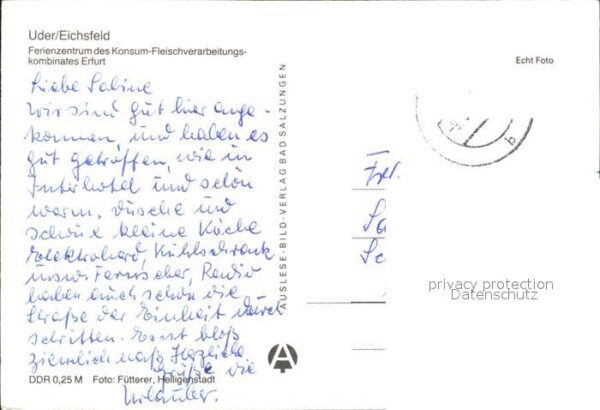 Uder/Eichsfeld
Ferienzentrum des Konsum-Fleischverarbeitungs-
kombinates Erfurt
Echt Foto
Liebe Sabine
Wir sind gut hier ange-
kommen, und haben es
gut getroffen, wie in
Interhotel und schön
warm, Dusche und
schöne kleine Küche
Elektroherd, Kühlschrank
usw Fernseher, Radio
haben auch schon die
Straße der Einheit durch
schritten. Es ist bloß
ziemlich naß Herzliche
Grüße die
Urlauber.
AUSLESE-BILD-VERLAG BAD SALZUNGEN
Frl.
Sa
Sc
privacy protection
Datenschutz
b
A
DDR 0,25 M Foto: Fütterer, Heiligenstadt